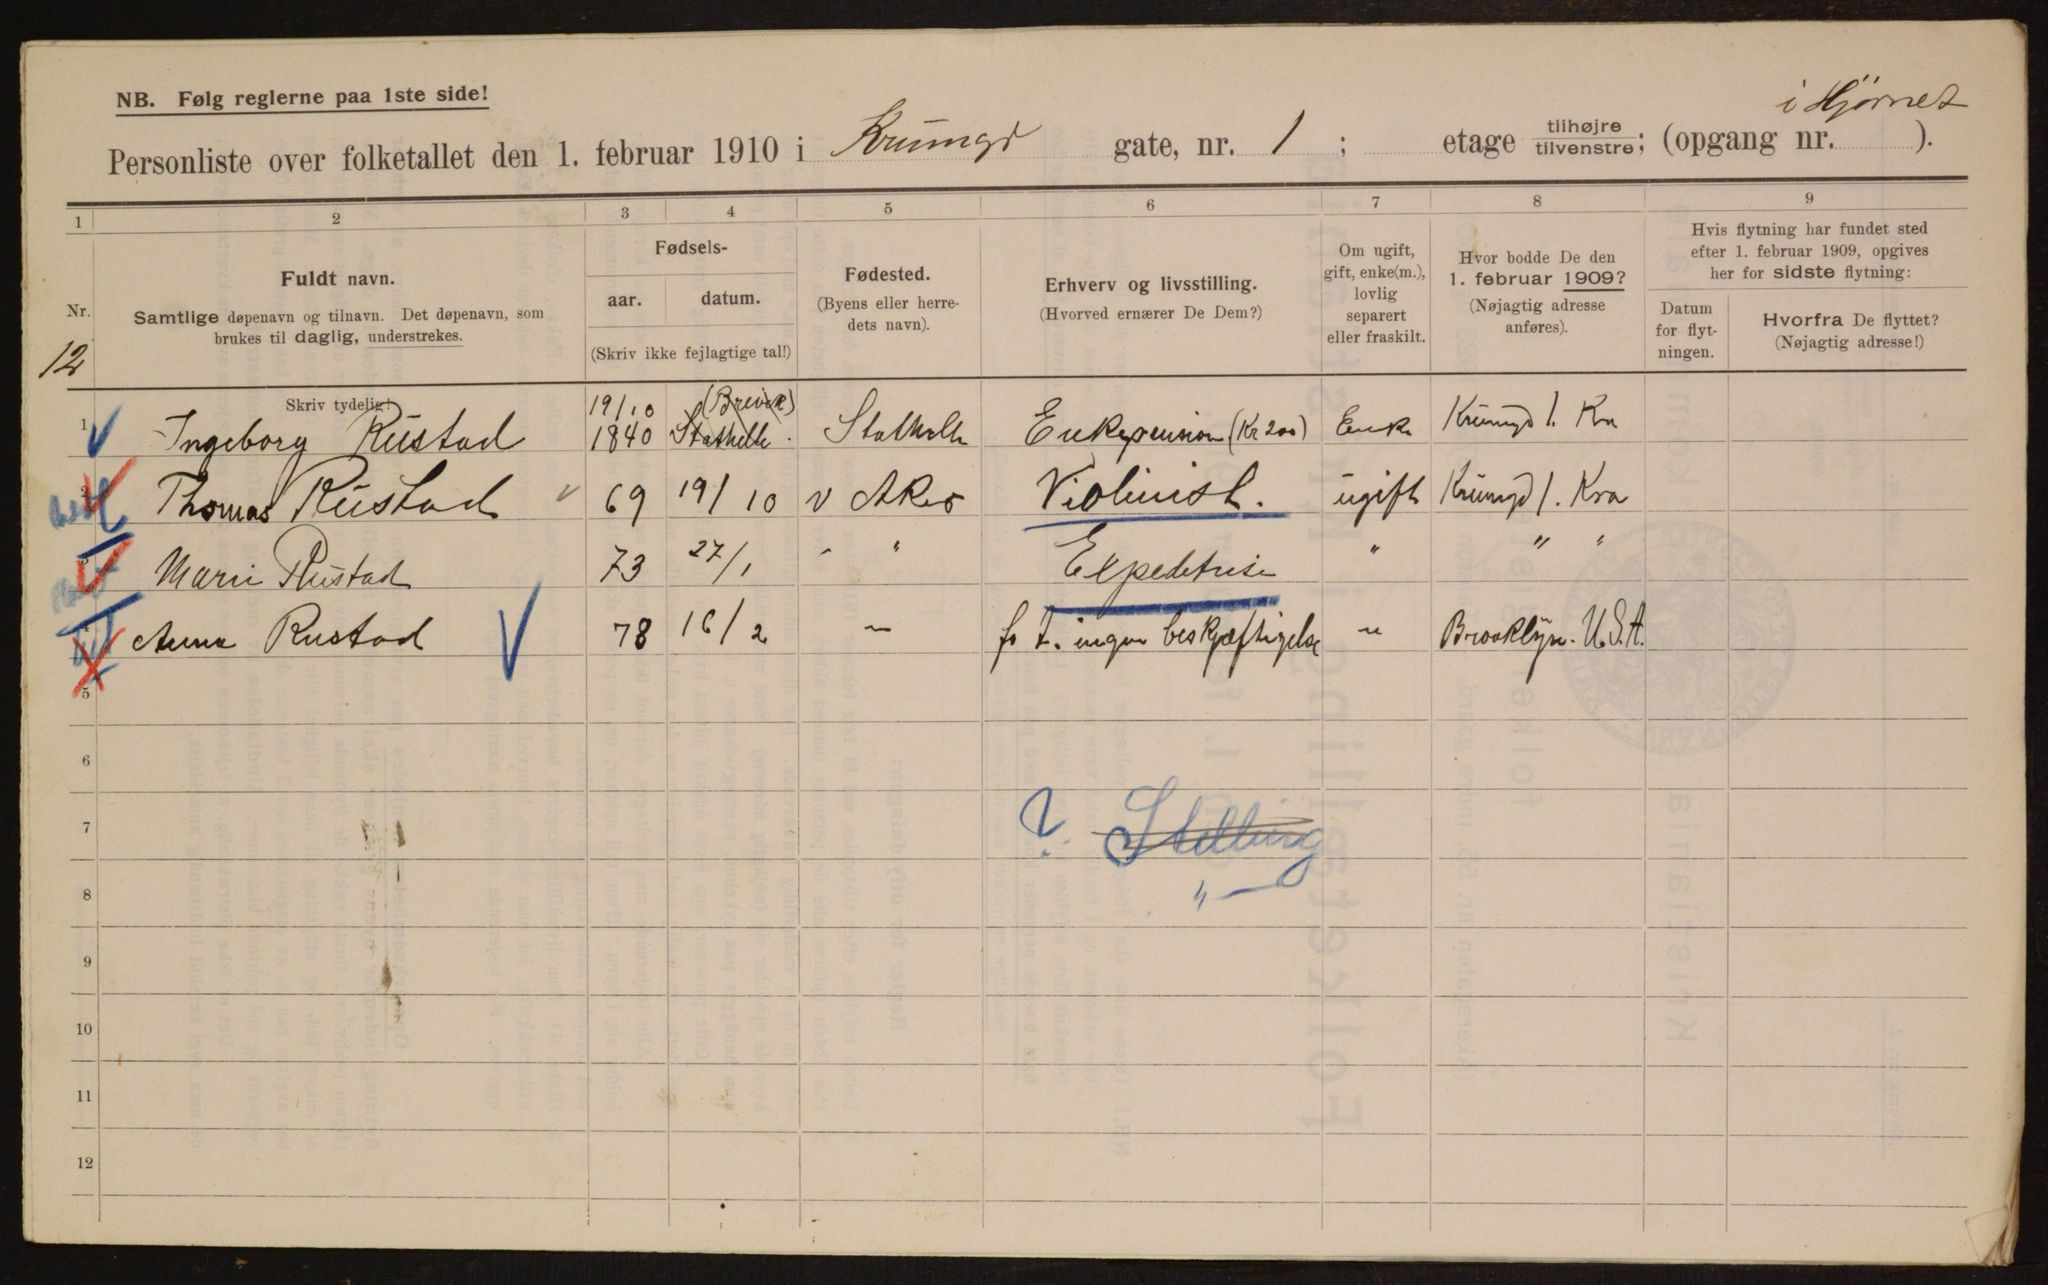 i Hjørnet
NB. Følg reglerne paa 1ste side!
Personliste over folketallet den 1. februar 1910 i Krumgd gate, nr. 1 ; etage tilhøjre tilvenstre; (opgang nr. ).
1 2 3 4 5 6 7 8 9
Nr.
12
Fuldt navn.
Samtlige døpenavn og tilnavn. Det døpenavn, som
brukes til daglig, understrekes.
Skriv tydelig!
Fødsels-
aar. datum.
(Skriv ikke fejlagtige tal!)
Fødested.
(Byens eller herre-
dets navn).
Erhverv og livsstilling.
(Hvorved ernærer De Dem?)
Om ugift,
gift, enke(m.),
lovlig
separert
eller fraskilt.
Hvor bodde De den
1. februar 1909?
(Nøjagtig adresse
anføres).
Hvis flytning har fundet sted
efter 1. februar 1909, opgives
her for sidste flytning:
Datum
for flyt-
ningen.
Hvorfra De flyttet?
(Nøjagtig adresse!)
19/10 (Brevik)
1 Ingeborg Rustad 1840 Stathelle. Stathelle Enkepension (Kr 200) Enke Krumgd 1. Kra
2 Thomas Rustad 69 19/10 v Aker Violinist. ugift Krumgd 1. Kra
3 Marie Rustad 73 27/1 - " Expeditrise " " "
4 Anna Rustad 78 16/2 — f. t. ingen beskjæftigelse " Brooklyn. U.S.A.
5
6
7 ? Stilling
8 " —
9
10
11
12